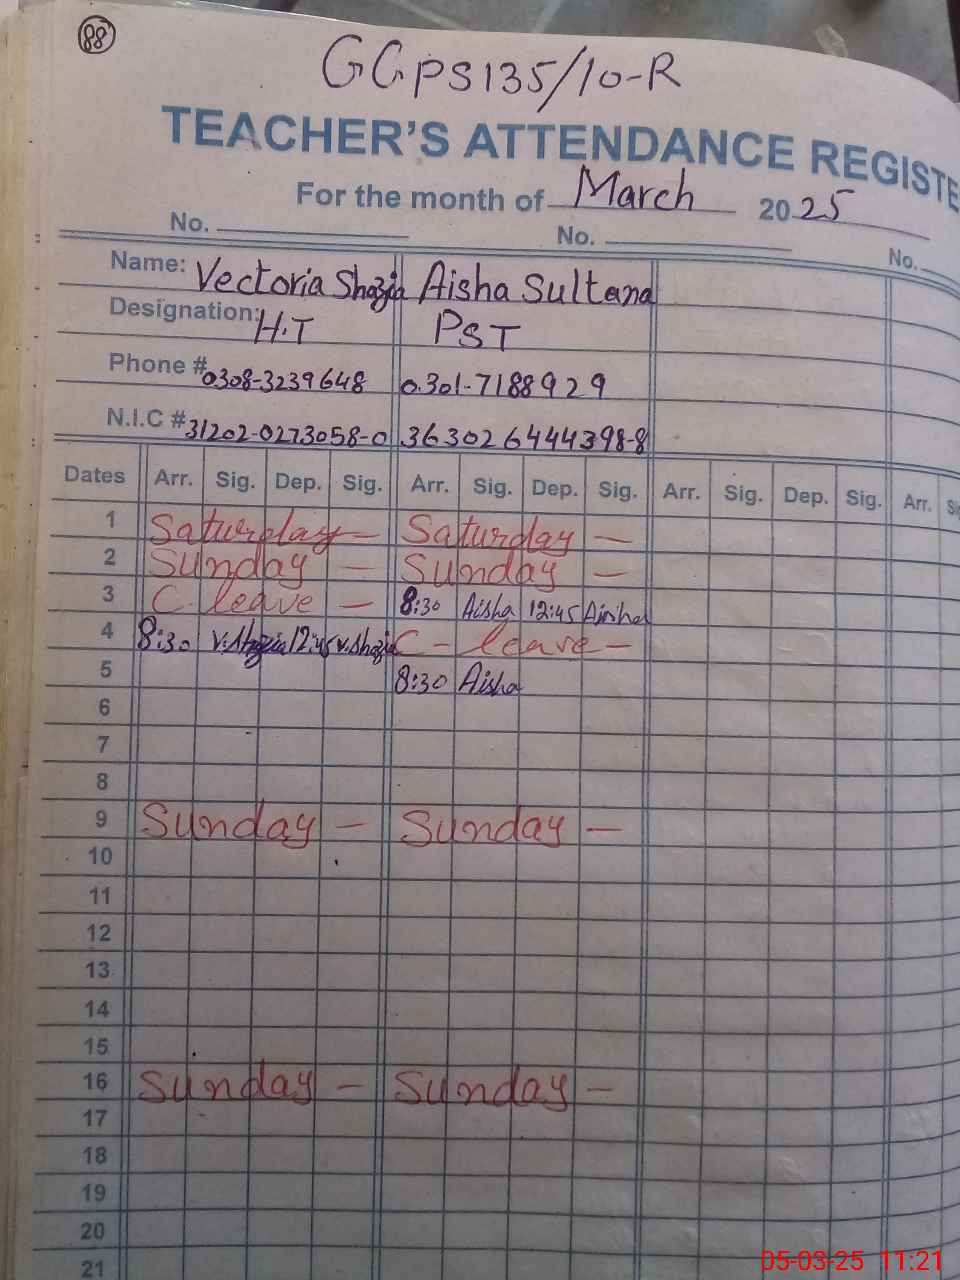 88
GGPS135/10-R
TEACHER'S ATTENDANCE REGISTE
For the month of March 2025
No. No. No.
Name: Vectoria Shazia Aisha Sultana
Designation: H.T PST
Phone # 0308-3239648 0301-7188929
N.I.C # 31202-0273058-0 363026444398-8
Dates Arr. Sig. Dep. Sig. Arr. Sig. Dep. Sig. Arr. Sig. Dep. Sig. Arr. Si
1 Saturday - Saturday -
2 Sunday - Sunday -
3 C. leave - 8:30 Aisha 12:45 Aisha
4 8:30 V.Shazia 12:45 V.Shazia C - leave -
5 8:30 Aisha
6
7
8
9 Sunday - Sunday -
10
11
12
13
14
15
16 Sunday - Sunday -
17
18
19
20
21
05-03-25 11:21